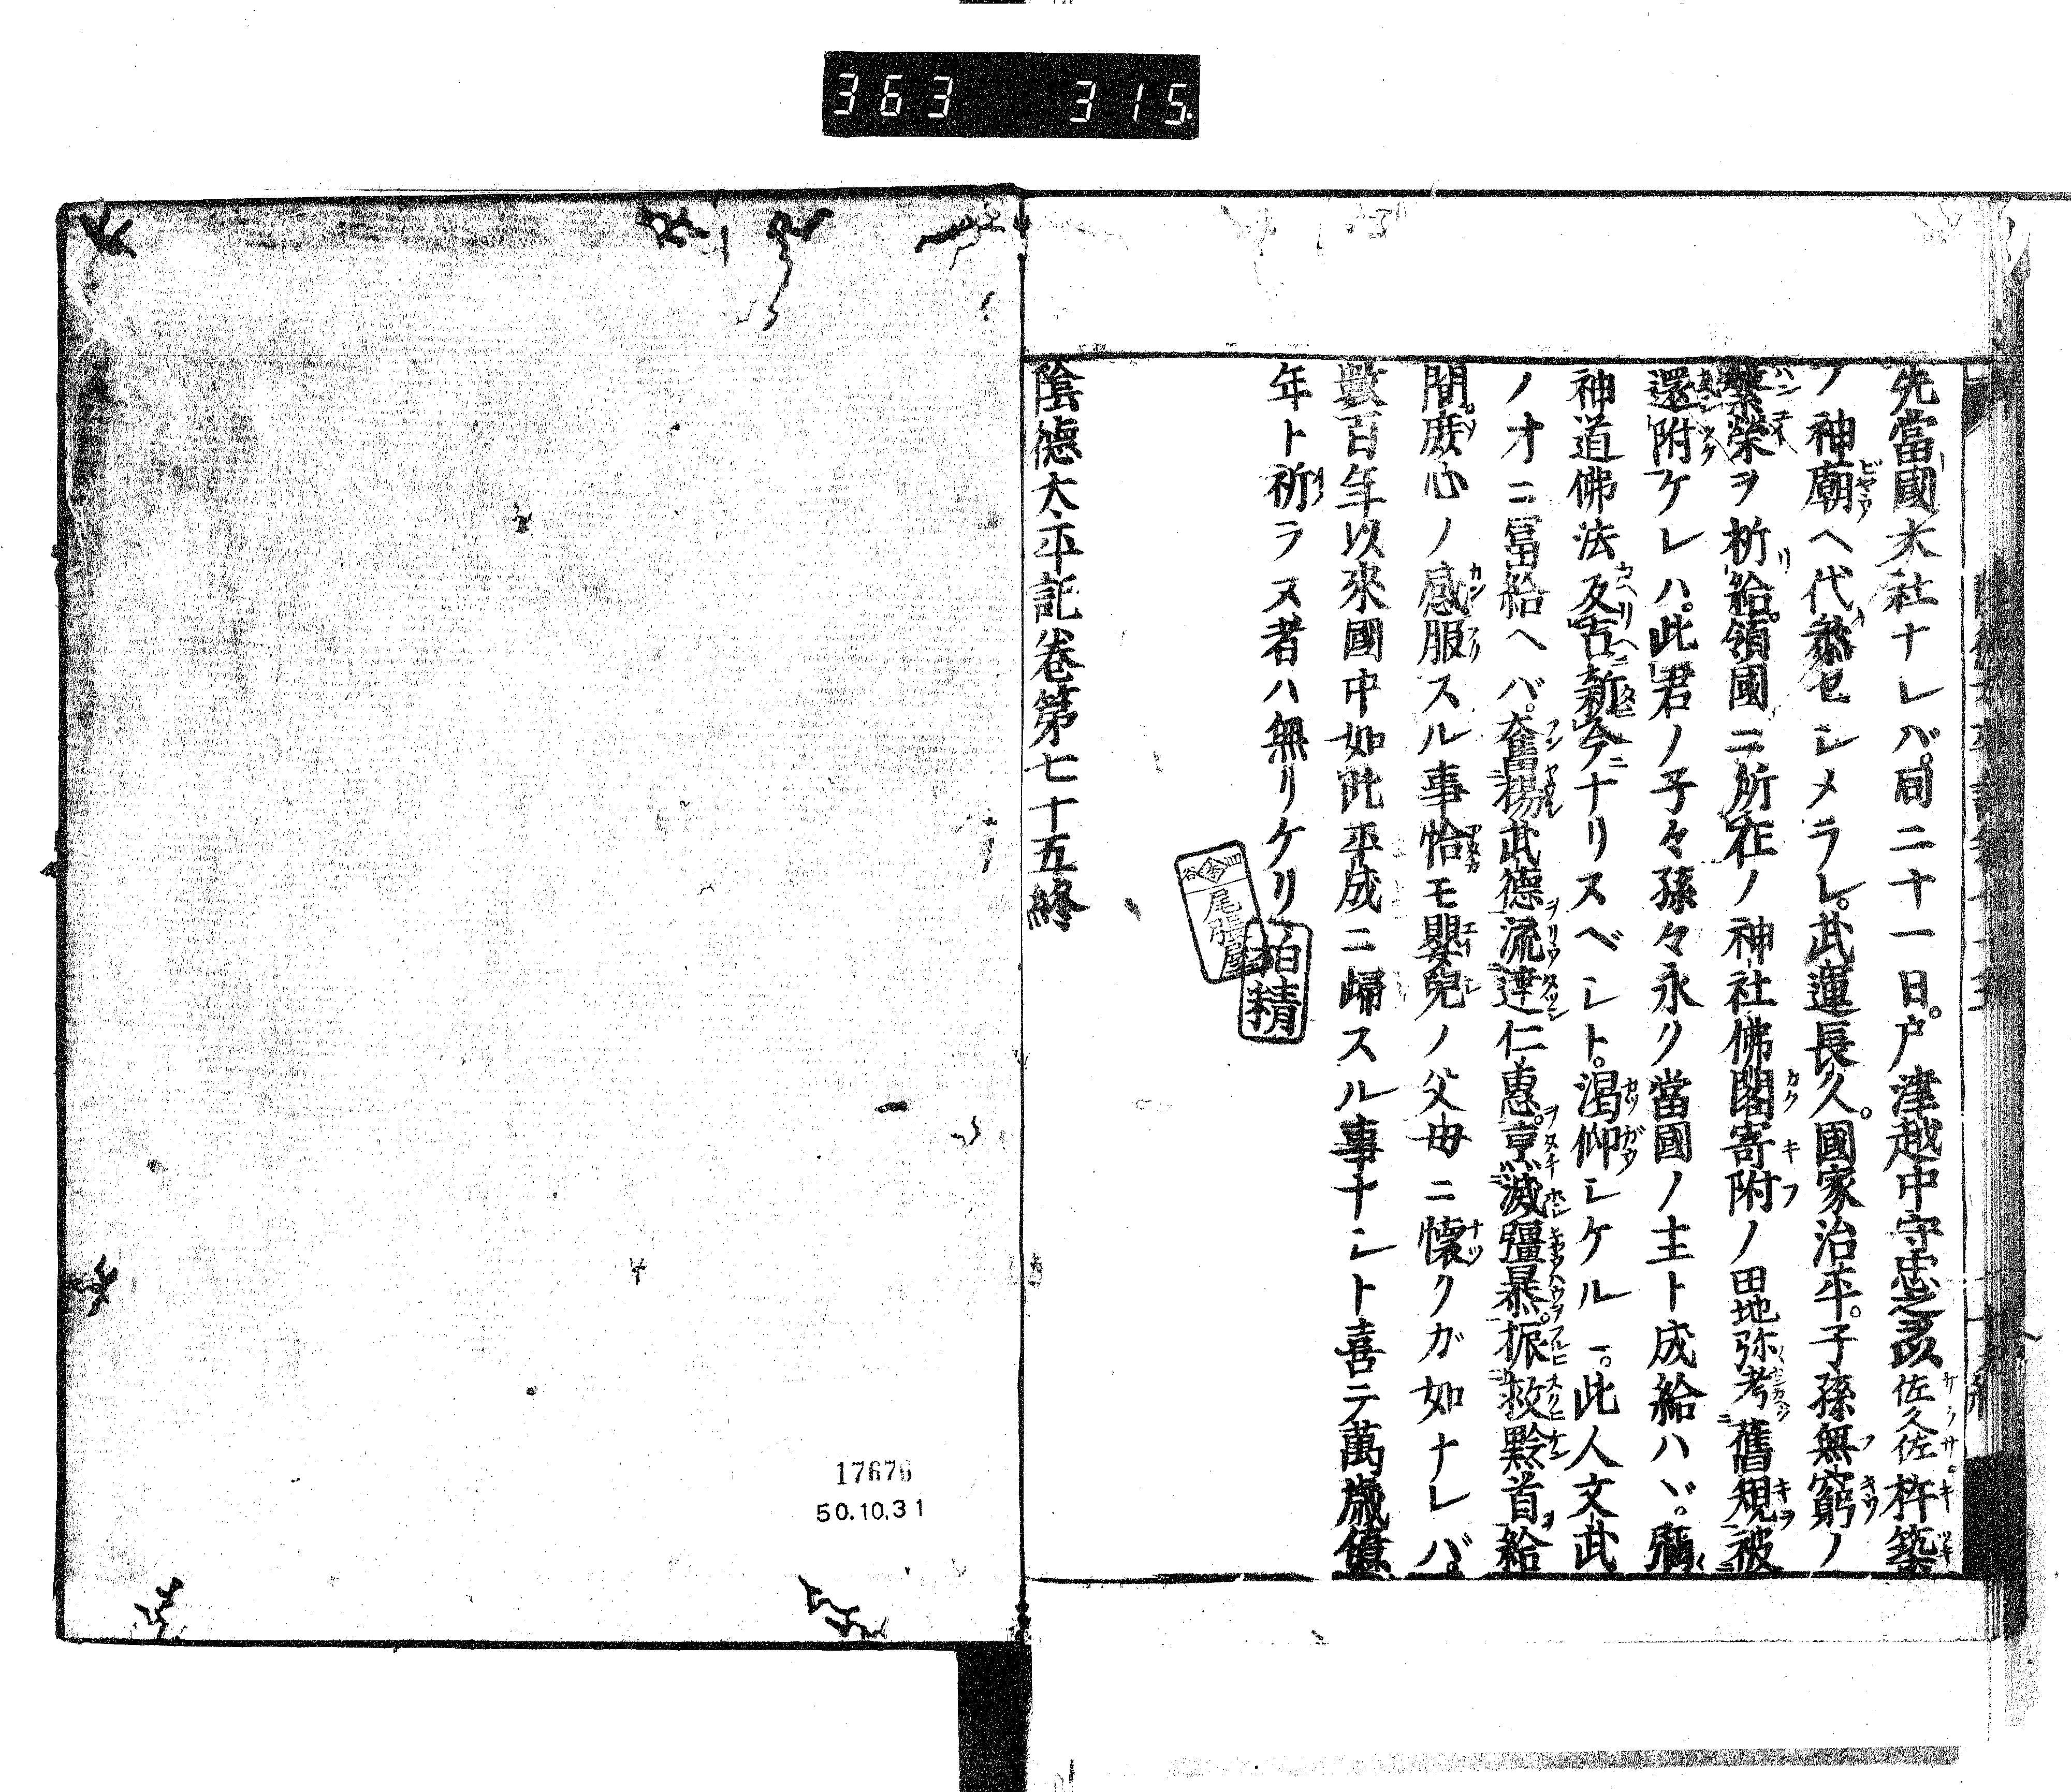 363 315
先當國大社ナレバ。同二十一日。戸津越中守忠之ヲ以佐久佐杵築
ノ神廟ヘ代參セシメラレ。武運長久。國家治平。子孫無窮ノ
繁榮ヲ祈給。領國ニ所在ノ神社佛閣寄附ノ田地弥考舊規被
還附ケレハ。此君ノ子々孫々永ク當國ノ主ト成給ハヾ。彌
神道佛法反古新今ナリスベシト。渇仰シケル。此人文武
ノオニ富給ヘバ。奮揚武德流達仁惠。享滅彊暴。振救黔首給
間。庻心ノ感服スル事恰モ嬰兒ノ父母ニ懷クガ如ナレバ。
數百年以來國中如此平成ニ歸スル事ナシト喜テ萬歳億
年ト祈ラヌ者ハ無リケリ
尾張屋
陰德太平記卷第七十五終
17676
50.10.31